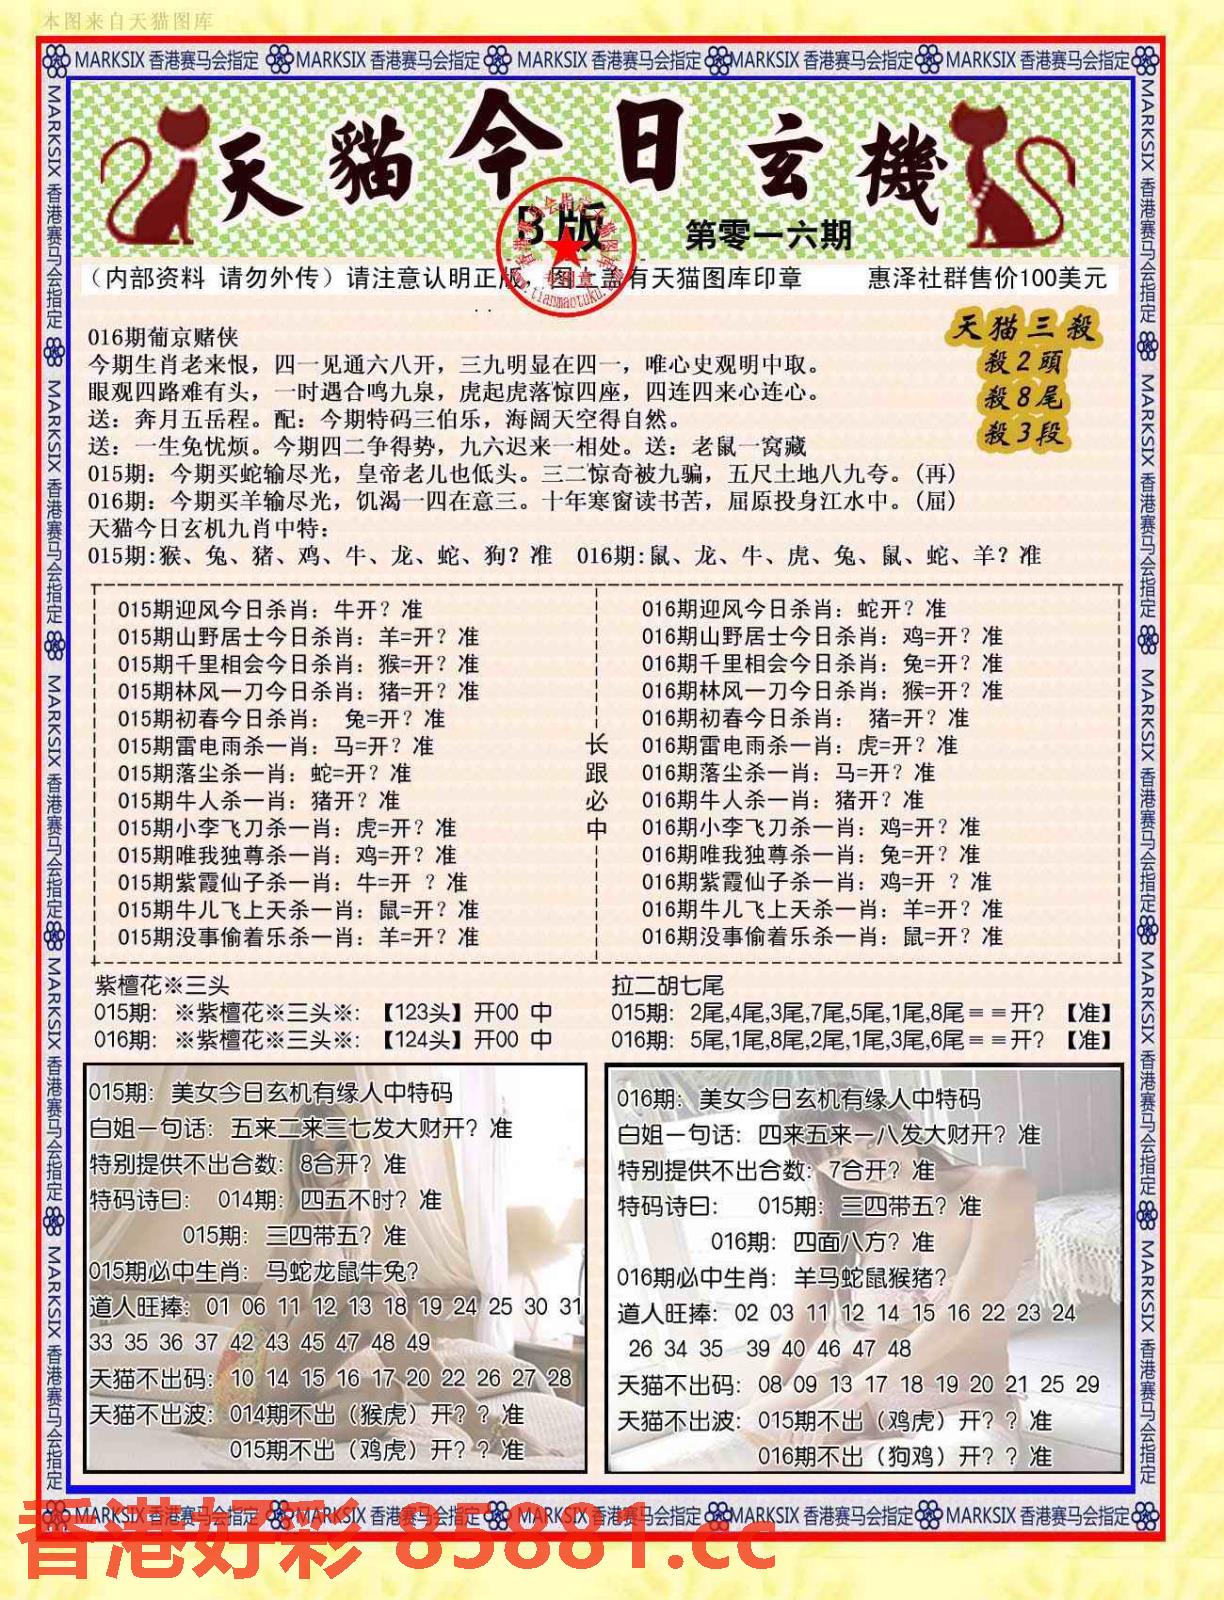 本图来自天猫图库
MARKSIX 香港赛马会指定 MARKSIX 香港赛马会指定 MARKSIX 香港赛马会指定 MARKSIX 香港赛马会指定 MARKSIX 香港赛马会指定
天貓今日玄機
B版
第零一六期
(内部资料 请勿外传) 请注意认明正版 图 盖有天猫图库印章 惠泽社群售价100美元
天猫三殺
殺2頭
殺8尾
殺3段
016期葡京赌侠
今期生肖老来恨，四一见通六八开，三九明显在四一，唯心史观明中取。
眼观四路难有头，一时遇合鸣九泉，虎起虎落惊四座，四连四来心连心。
送：奔月五岳程。配：今期特码三伯乐，海阔天空得自然。
送：一生免忧烦。今期四二争得势，九六迟来一相处。送：老鼠一窝藏
015期：今期买蛇输尽光，皇帝老儿也低头。三二惊奇被九骗，五尺土地八九夸。(再)
016期：今期买羊输尽光，饥渴一四在意三。十年寒窗读书苦，屈原投身江水中。(屈)
天猫今日玄机九肖中特：
015期:猴、兔、猪、鸡、牛、龙、蛇、狗？准 016期:鼠、龙、牛、虎、兔、鼠、蛇、羊？准
015期迎风今日杀肖：牛开？准
015期山野居士今日杀肖：羊=开？准
015期千里相会今日杀肖：猴=开？准
015期林风一刀今日杀肖：猪=开？准
015期初春今日杀肖： 兔=开？准
015期雷电雨杀一肖：马=开？准
015期落尘杀一肖：蛇=开？准
015期牛人杀一肖：猪开？准
015期小李飞刀杀一肖：虎=开？准
015期唯我独尊杀一肖：鸡=开？准
015期紫霞仙子杀一肖：牛=开 ？准
015期牛儿飞上天杀一肖：鼠=开？准
015期没事偷着乐杀一肖：羊=开？准
长跟必中
016期迎风今日杀肖：蛇开？准
016期山野居士今日杀肖：鸡=开？准
016期千里相会今日杀肖：兔=开？准
016期林风一刀今日杀肖：猴=开？准
016期初春今日杀肖： 猪=开？准
016期雷电雨杀一肖：虎=开？准
016期落尘杀一肖：马=开？准
016期牛人杀一肖：猪开？准
016期小李飞刀杀一肖：鸡=开？准
016期唯我独尊杀一肖：兔=开？准
016期紫霞仙子杀一肖：鸡=开 ？准
016期牛儿飞上天杀一肖：羊=开？准
016期没事偷着乐杀一肖：鼠=开？准
紫檀花※三头
015期：※紫檀花※三头※：【123头】开00 中
016期：※紫檀花※三头※：【124头】开00 中
拉二胡七尾
015期：2尾,4尾,3尾,7尾,5尾,1尾,8尾＝＝开？【准】
016期：5尾,1尾,8尾,2尾,1尾,3尾,6尾＝＝开？【准】
015期：美女今日玄机有缘人中特码
白姐一句话：五来二来三七发大财开？准
特别提供不出合数：8合开？准
特码诗曰： 014期：四五不时？准
015期：三四带五？准
015期必中生肖：马蛇龙鼠牛兔？
道人旺捧：01 06 11 12 13 18 19 24 25 30 31
33 35 36 37 42 43 45 47 48 49
天猫不出码：10 14 15 16 17 20 22 26 27 28
天猫不出波：014期不出（猴虎）开？？准
015期不出（鸡虎）开？？准
016期：美女今日玄机有缘人中特码
白姐一句话：四来五来一八发大财开？准
特别提供不出合数：7合开？准
特码诗曰： 015期：三四带五？准
016期：四面八方？准
016期必中生肖：羊马蛇鼠猴猪？
道人旺捧：02 03 11 12 14 15 16 22 23 24
26 34 35 39 40 46 47 48
天猫不出码：08 09 13 17 18 19 20 21 25 29
天猫不出波：015期不出（鸡虎）开？？准
016期不出（狗鸡）开？？准
MARKSIX 香港赛马会指定 MARKSIX 香港赛马会指定 MARKSIX 香港赛马会指定 MARKSIX 香港赛马会指定 MARKSIX 香港赛马会指定
香港好彩 85881.cc